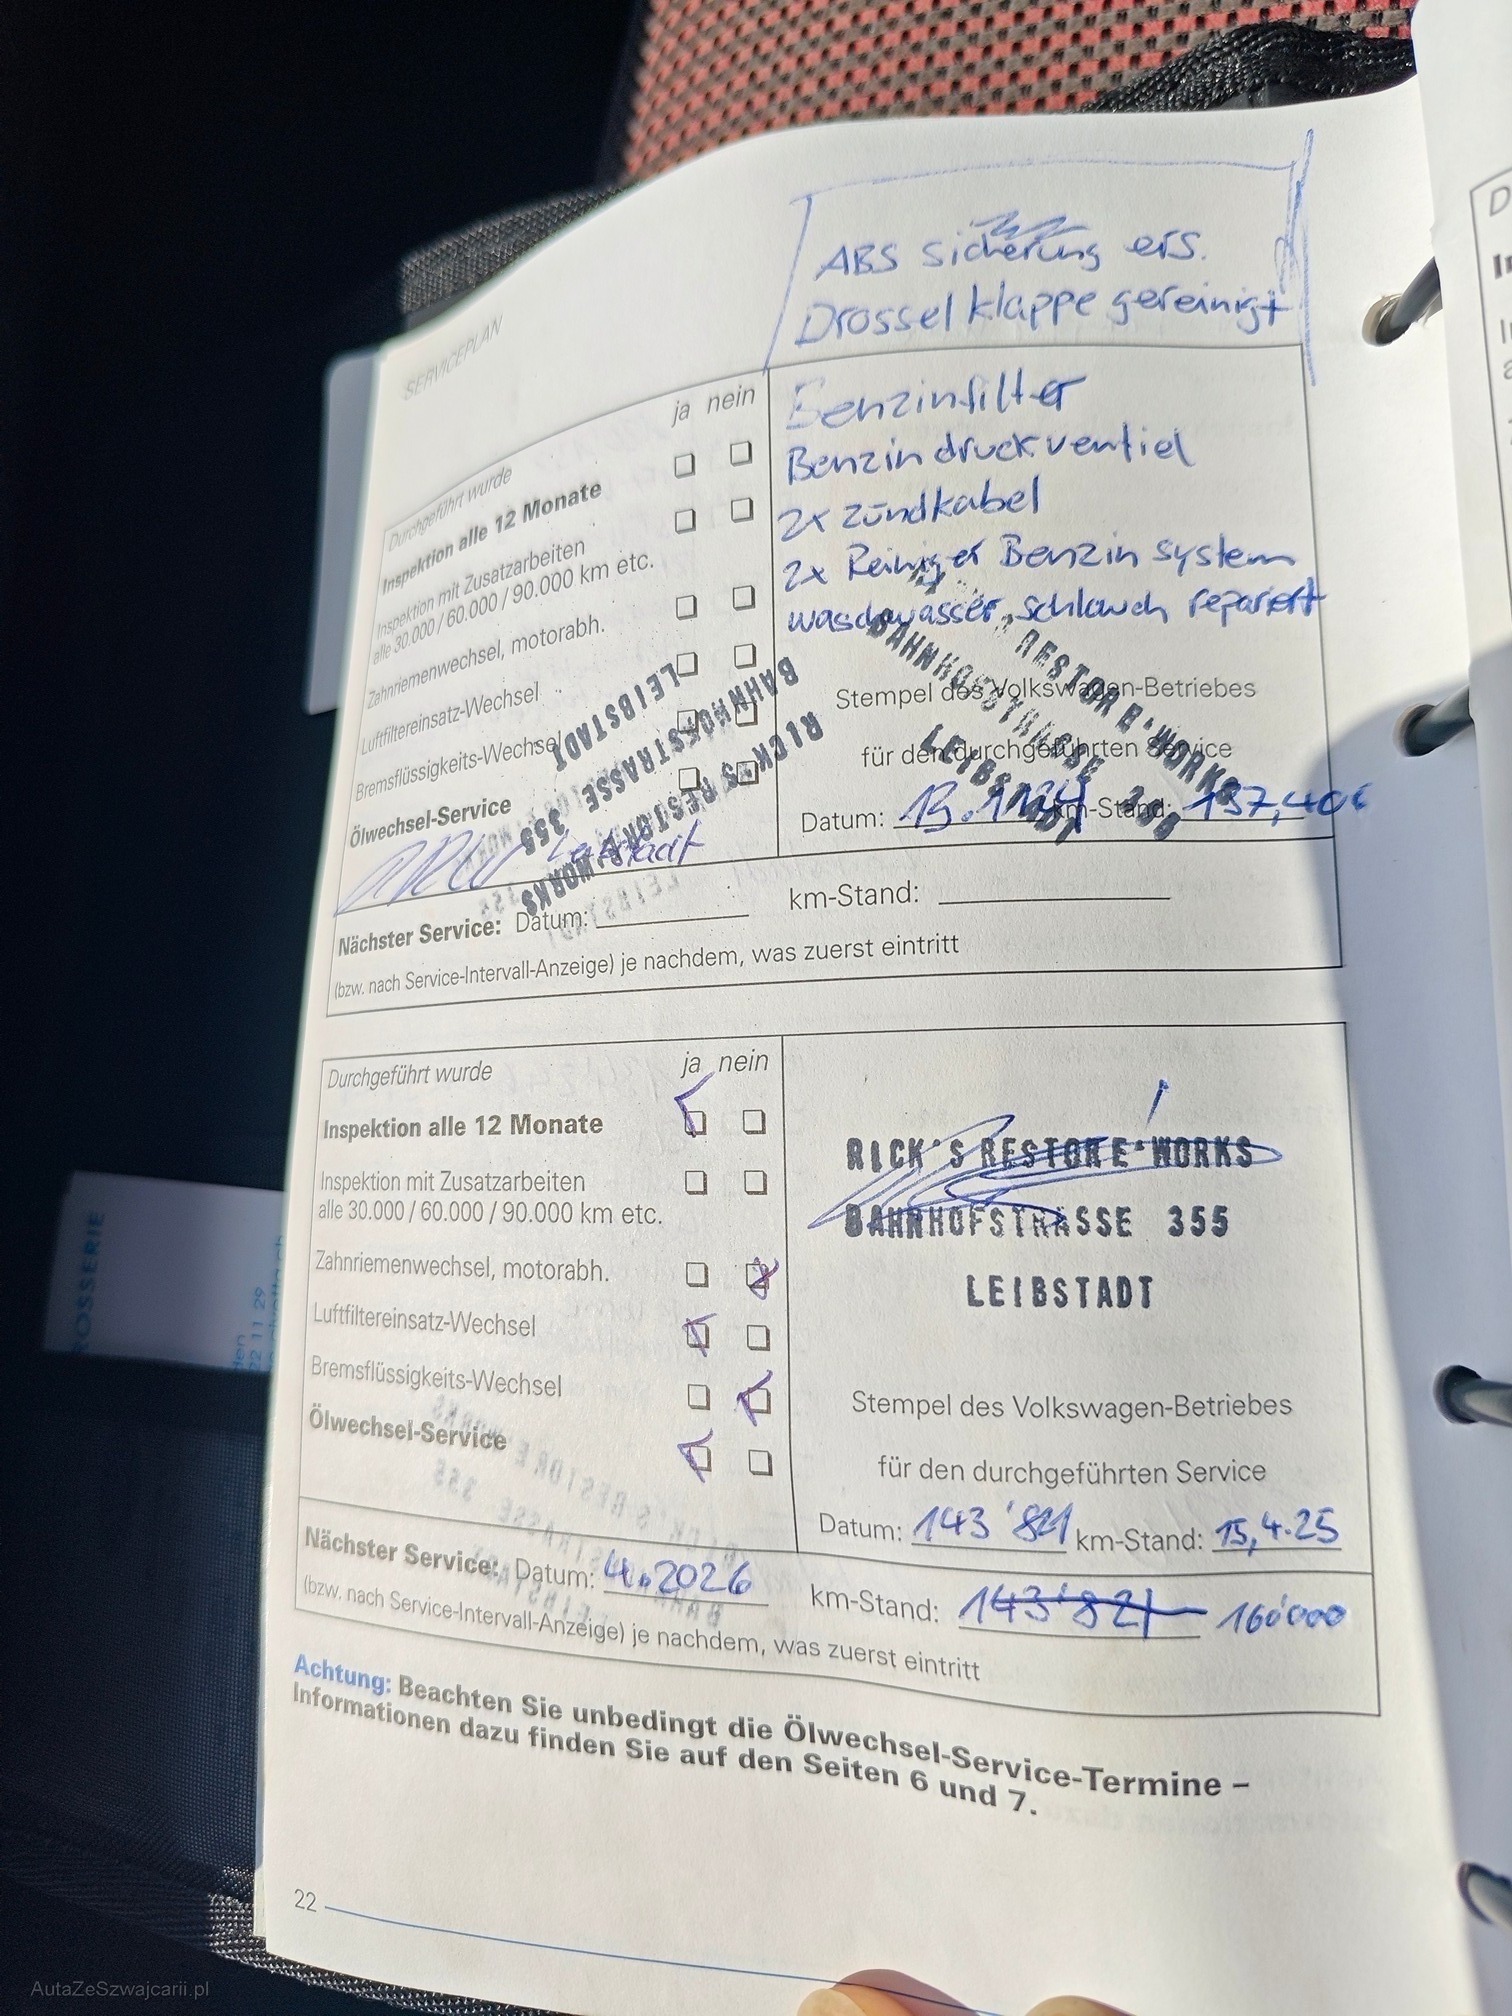 SERVICEPLAN
ABS sicherung ers.
Drosselklappe gereinigt
ja nein
Benzinfilter
Benzindruckventiel
2x Zündkabel
2x Reiniger Benzin system
waschwasser, schlauch repariert
Durchgeführt wurde
Inspektion alle 12 Monate
Inspektion mit Zusatzarbeiten
alle 30.000 / 60.000 / 90.000 km etc.
Zahnriemenwechsel, motorabh.
Luftfiltereinsatz-Wechsel
Bremsflüssigkeits-Wechsel
Ölwechsel-Service
RICK'S RESTORE'WORKS
BAHNHOFSTRASSE 355
LEIBSTADT
Leibstadt
RESTORE'WORKS
BAHNHOFSTRASSE
LEIBSTADT
Stempel des Volkswagen-Betriebes
für den durchgeführten Service
Datum: km-Stand:
Nächster Service: Datum: km-Stand:
(bzw. nach Service-Intervall-Anzeige) je nachdem, was zuerst eintritt
Durchgeführt wurde ja nein
Inspektion alle 12 Monate
Inspektion mit Zusatzarbeiten
alle 30.000 / 60.000 / 90.000 km etc.
Zahnriemenwechsel, motorabh.
Luftfiltereinsatz-Wechsel
Bremsflüssigkeits-Wechsel
Ölwechsel-Service
RICK'S RESTORE'WORKS
BAHNHOFSTRASSE 355
LEIBSTADT
Stempel des Volkswagen-Betriebes
für den durchgeführten Service
Datum: 143'821 km-Stand: 15,4.25
Nächster Service: Datum: 4.2026 km-Stand: 143'821 160'000
(bzw. nach Service-Intervall-Anzeige) je nachdem, was zuerst eintritt
Achtung: Beachten Sie unbedingt die Ölwechsel-Service-Termine –
Informationen dazu finden Sie auf den Seiten 6 und 7.
22
AutaZeSzwajcarii.pl